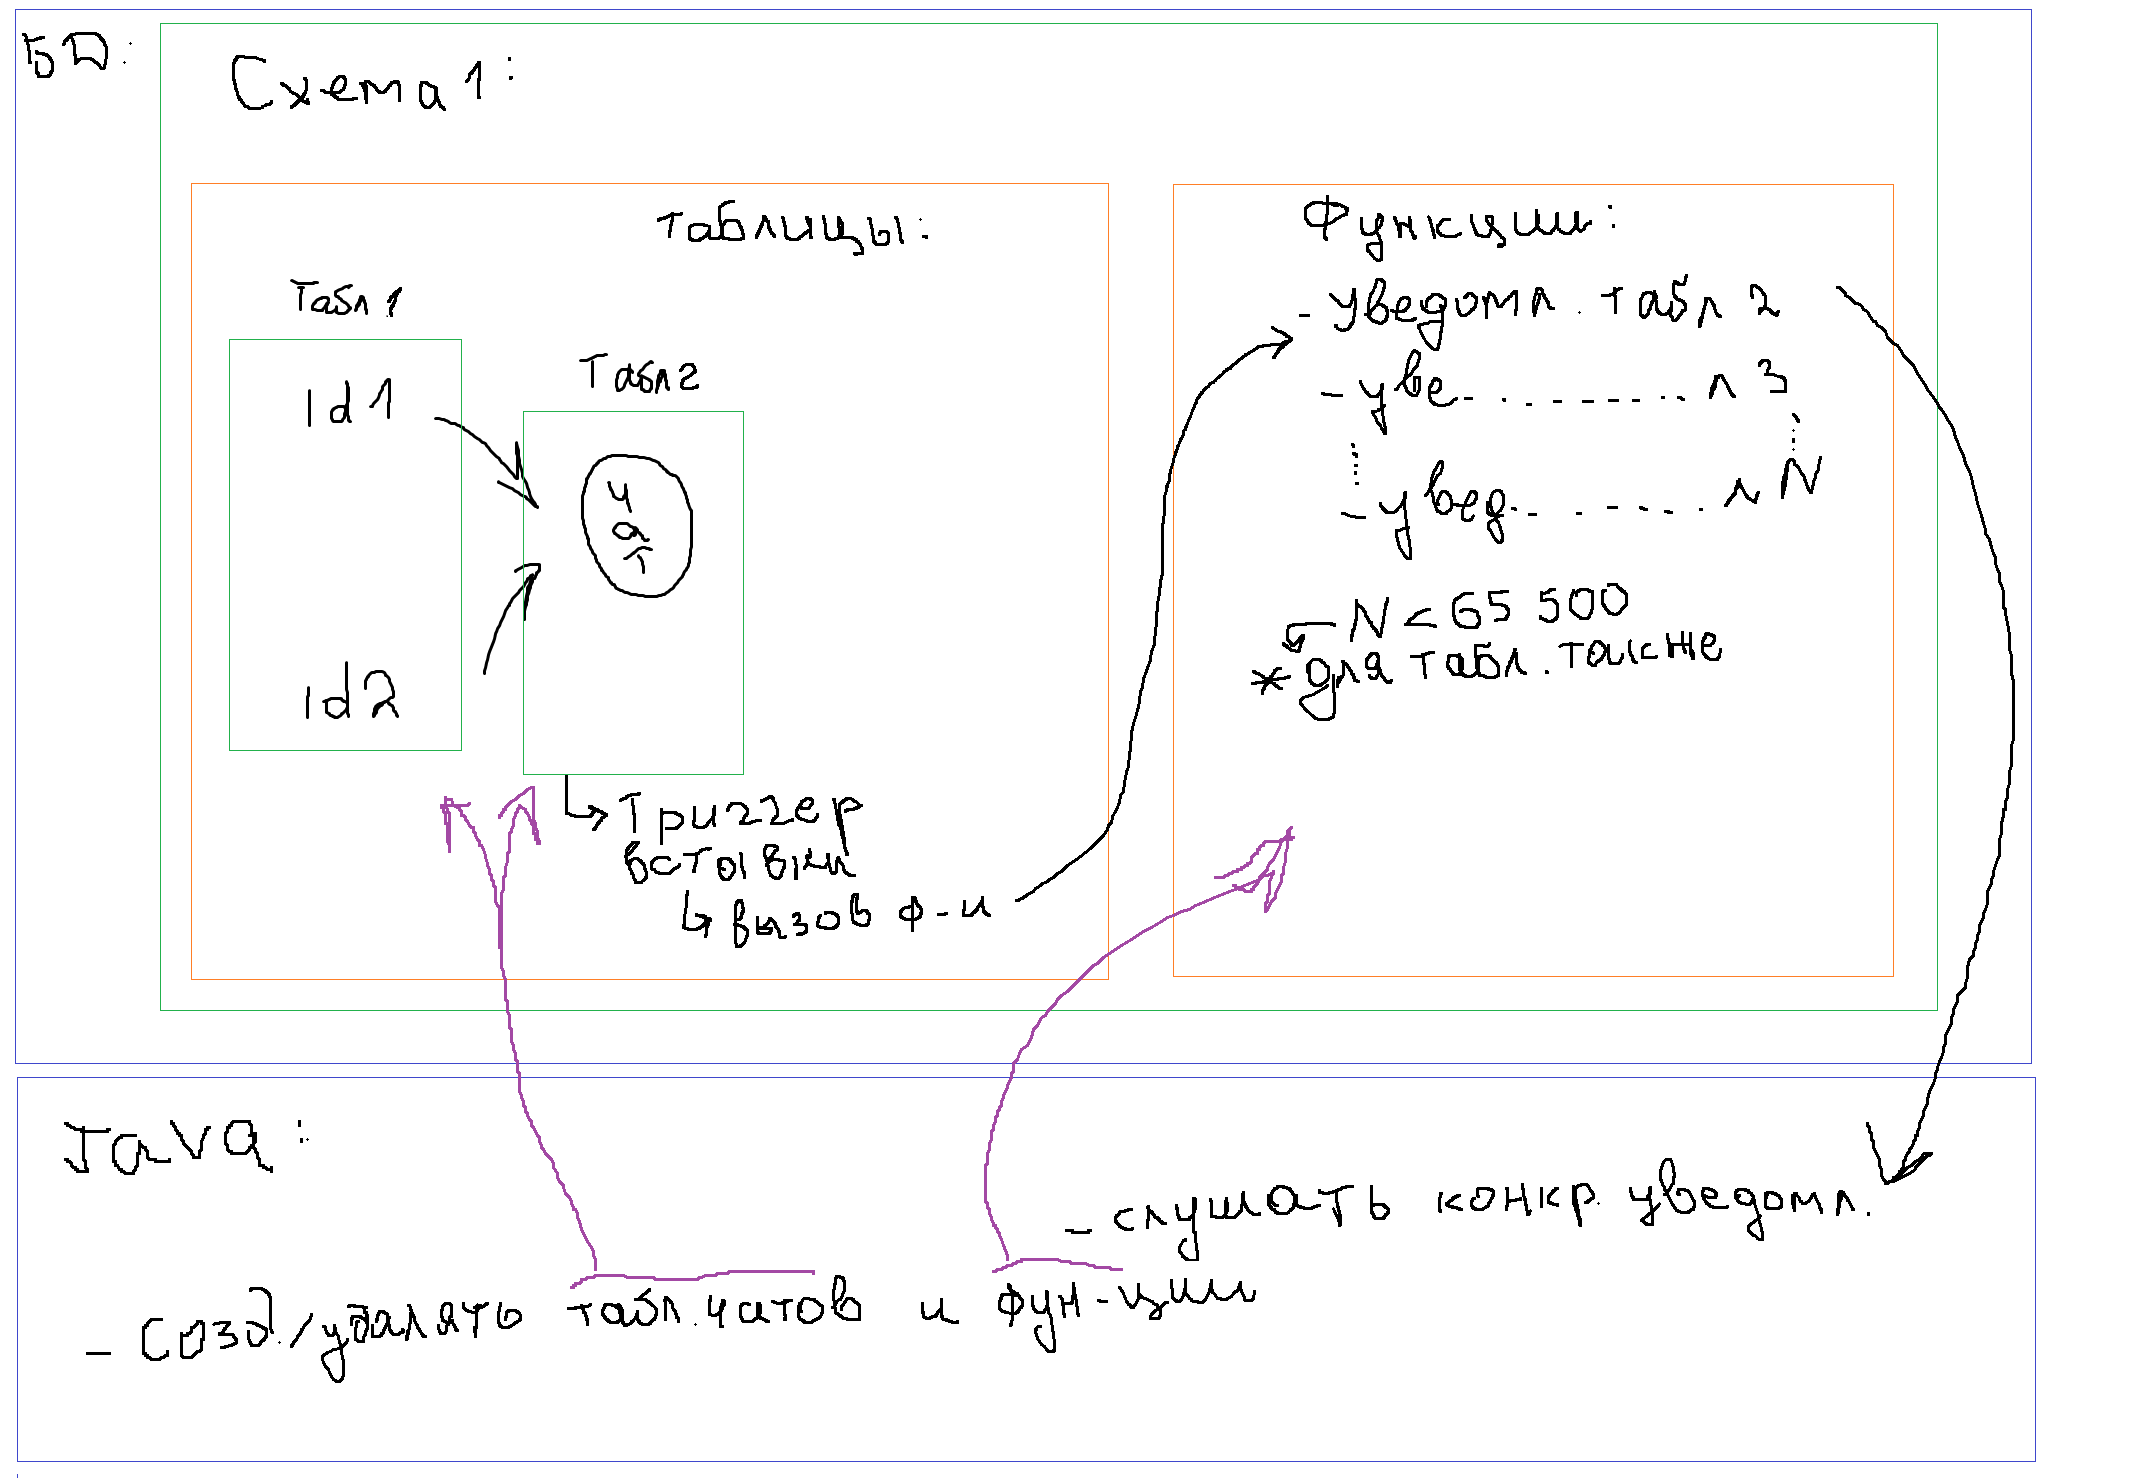 БД:
Схема 1:
таблицы:
Табл 1
id 1
id 2
Табл 2
чат
Триггер
вставки
вызов ф-и
Функции:
- уведомл. табл 2
- уве.......... л 3
- увед.......... л N
N < 65 500
* для табл. также
Java:
- слушать конкр. уведомл.
- созд./удалять табл. чатов и фун-ции